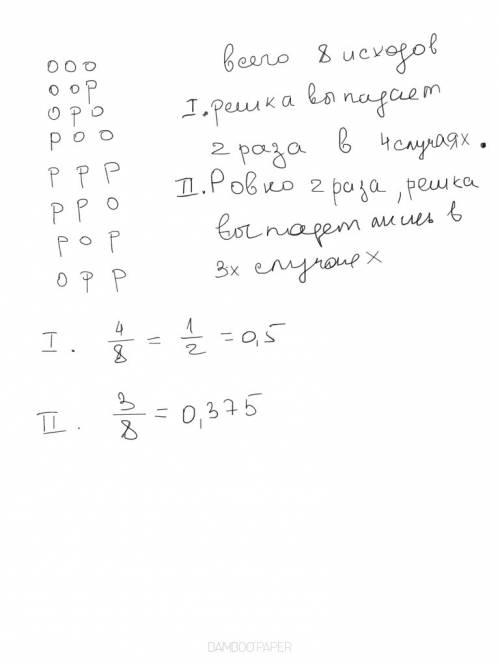 ООО
ООР
ОРО
РОО
РРР
РРО
РОР
ОРР
всего 8 исходов
I. решка выпадает
2 раза в 4 случаях.
II. Ровно 2 раза, решка
выпадет лишь в
3х случаех
I. 4/8 = 1/2 = 0,5
II. 3/8 = 0,375
BAMBOOPAPER